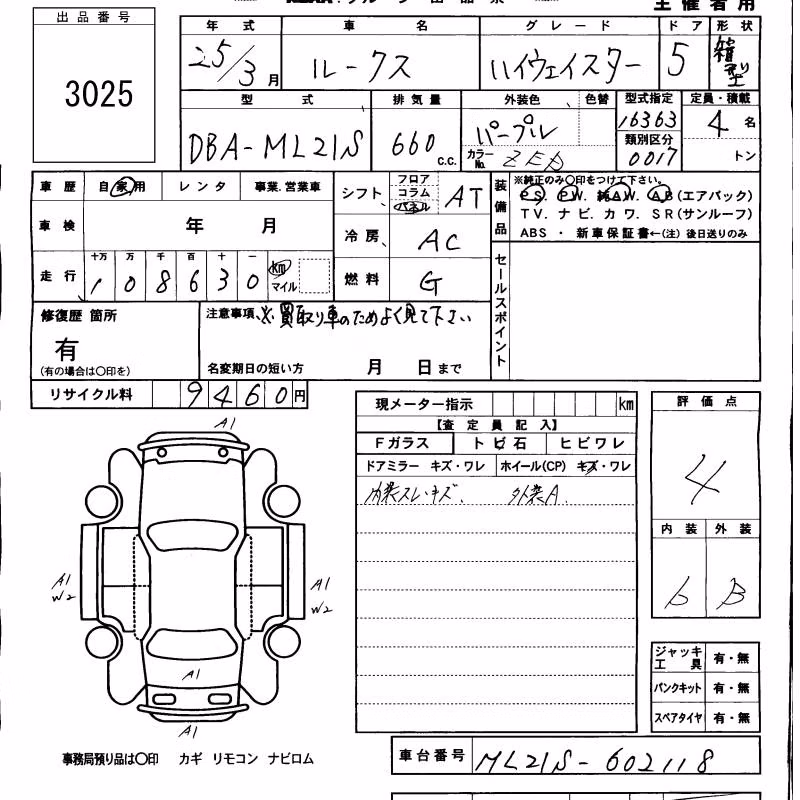 主催者用
出品番号
3025
年式 車名 グレード ドア 形状
25/3月 ルークス ハイウェイスター 5 箱型
型式 排気量 外装色 色替 型式指定 定員・積載
DBA-ML21S 660 C.C. パープル 16363 4名
カラーNo. 類別区分 0017 トン
車歴 自家用 レンタ 事業.営業車
シフト フロア コラム パネル AT
装備品 ※純正のみ○印をつけて下さい。
PS. PW. 純AW. AB(エアバック)
TV. ナビ. カワ. SR(サンルーフ)
ABS ・ 新車保証書←(注)後日送りのみ
車検 年 月
冷房 AC
走行 十万 万 千 百 十 一 km マイル
108630
燃料 G
セールスポイント
修復歴 箇所
有
(有の場合は○印を)
注意事項 ※買取り車のためよく見て下さい
名変期日の短い方 月 日まで
リサイクル料 9460円
現メーター指示 km
【査定員記入】
Fガラス トビ石 ヒビワレ
ドアミラー キズ・ワレ ホイール(CP) キズ・ワレ
内装スレ.キズ. 外装A.
評価点
4
内装 外装
b B
A1
A1 W2
A1 W2
A1
A1
ジャッキ工具 有・無
パンクキット 有・無
スペアタイヤ 有・無
事務局預り品は○印 カギ リモコン ナビロム
車台番号 ML21S-602118